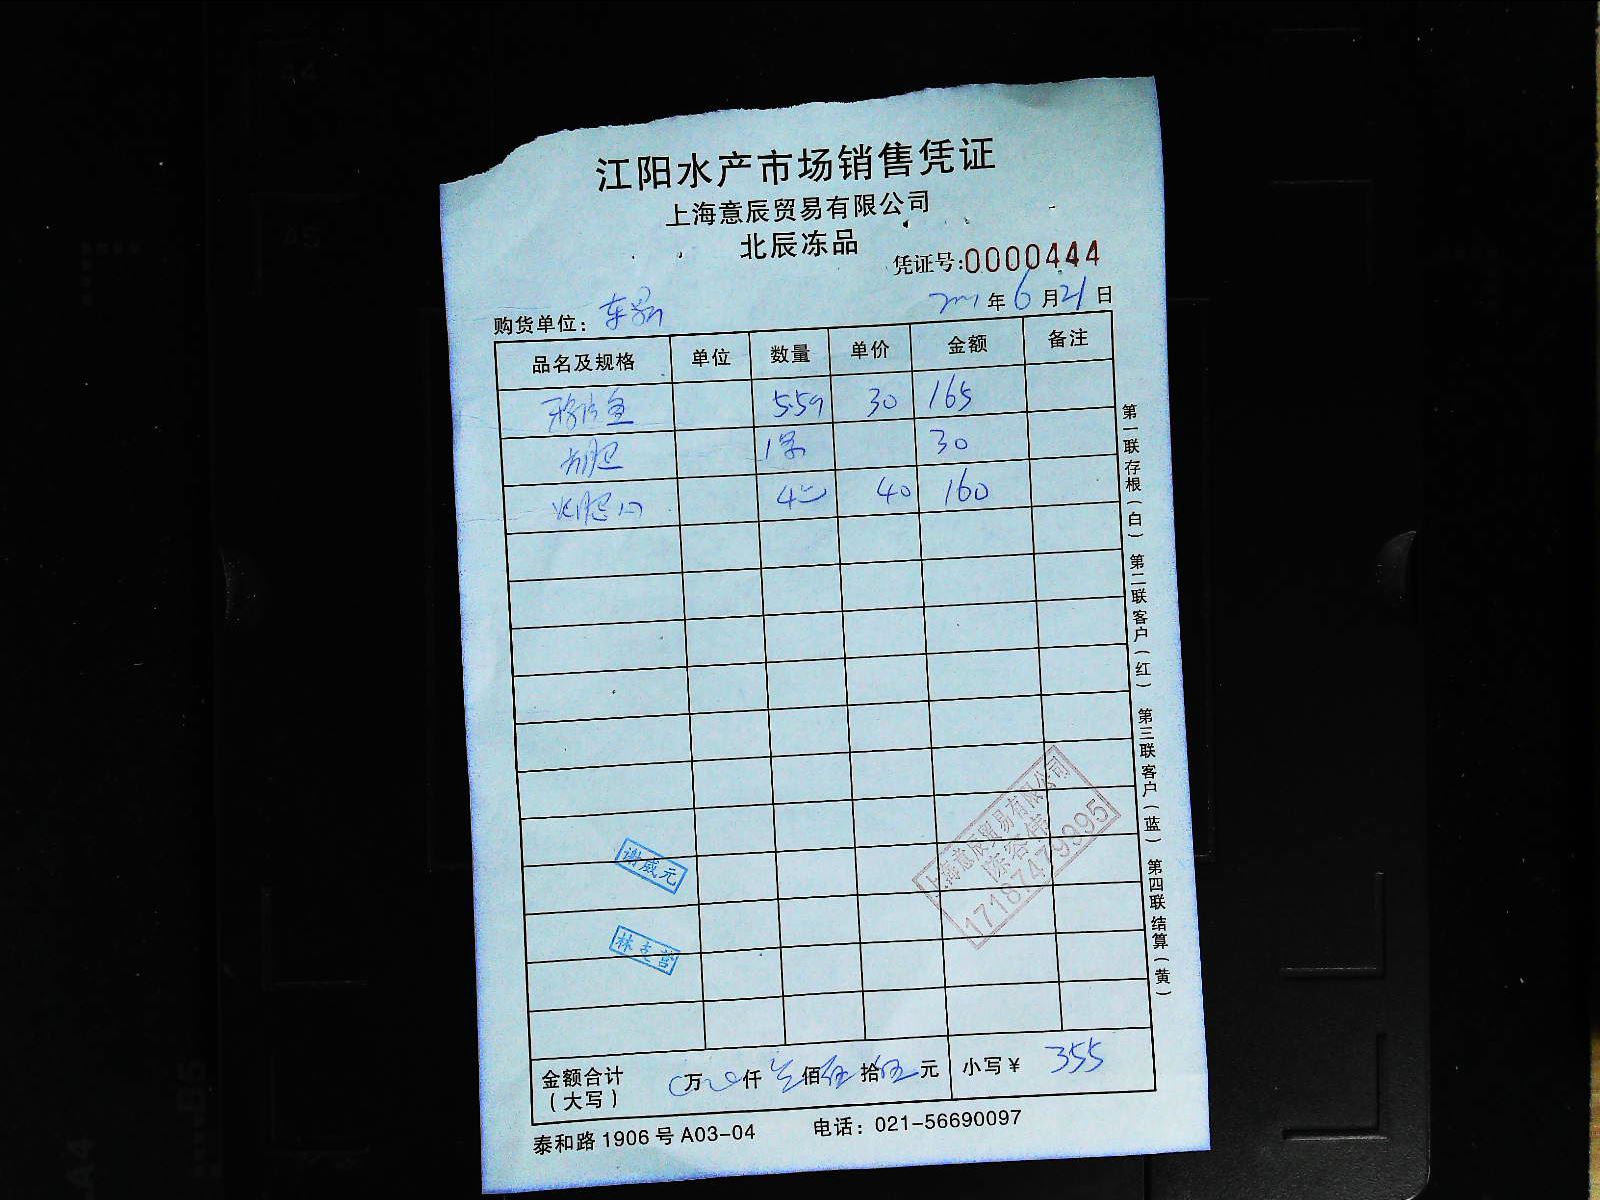 江阳水产市场销售凭证
上海意辰贸易有限公司
北辰冻品
凭证号:0000444
年6月21日
购货单位：
品名及规格 单位 数量 单价 金额 备注
鱼 30 165
30
40 160
第一联存根（白） 第二联客户（红） 第三联客户（蓝） 第四联结算（黄）
上海意辰贸易有限公司
陈容伟
17187479995
谢威元
林志营
金额合计（大写） 万 仟 叁佰伍拾伍元 小写￥ 355
泰和路1906号A03-04 电话：021-56690097